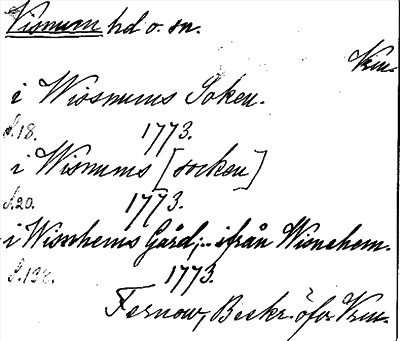 Visnum hd o. sn.
Vrm.
i Wissnums Soken.
S.18. 1773.
i Wisnums [socken]
S.20. 1773.
i Wissnhems Gård; - ifrån Wisnehem.
S.138. 1773.
Fernow, Beskr. öfver Vrm.